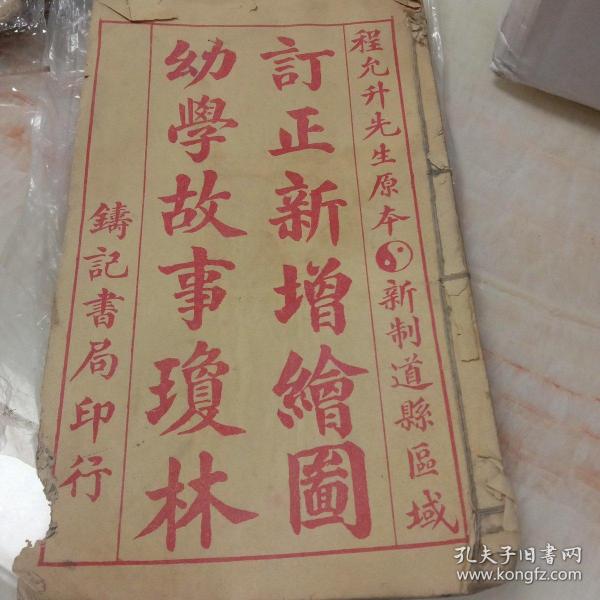 程允升先生原本 新制道縣區域
訂正新增繪圖
幼學故事瓊林
鑄記書局印行
孔夫子旧书网
www.kongfz.com